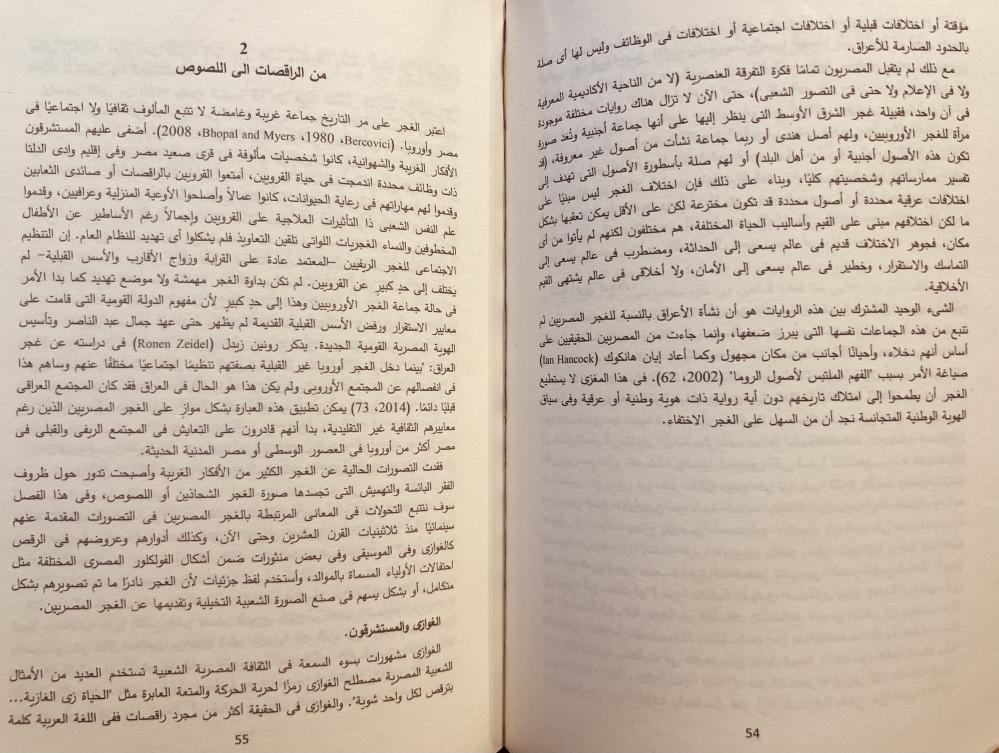 مؤقتة أو اختلافات قبلية أو اختلافات اجتماعية أو اختلافات فى الوظائف وليس لها أى صلة
بالحدود الصارمة للأعراق.
مع ذلك لم يتقبل المصريون تمامًا فكرة التفرقة العنصرية (لا من الناحية الأكاديمية المعرفية
ولا فى الإعلام ولا حتى فى التصور الشعبى)، حتى الآن لا تزال هناك روايات مختلفة موجودة
فى آن واحد، فقبيلة غجر الشرق الأوسط التى ينظر إليها على أنها جماعة أجنبية وتُعَد صورة
مرآة للغجر الأوروبيين، ولهم أصل هندى أو ربما جماعة نشأت من أصول غير معروفة، (قد
تكون هذه الأصول أجنبية أو من أهل البلد) أو لهم صلة بأسطورة الأصول التى تهدف إلى
تفسير ممارساتهم وشخصيتهم كليًا، وبناء على ذلك فإن اختلاف الغجر ليس مبنيًا على
اختلافات عرقية محددة أو أصول محددة قد تكون مخترعة لكن على الأقل يمكن تعقبها بشكل
ما لكن اختلافهم مبنى على القيم وأساليب الحياة المختلفة، هم مختلفون لكنهم لم يأتوا من أى
مكان، فجوهر الاختلاف قديم فى عالم يسعى إلى الحداثة، ومضطرب فى عالم يسعى إلى
التماسك والاستقرار، وخطير فى عالم يسعى إلى الأمان، ولا أخلاقى فى عالم يشتهى القيم
الأخلاقية.
الشىء الوحيد المشترك بين هذه الروايات هو أن نشأة الأعراق بالنسبة للغجر المصريين لم
تتبع من هذه الجماعات نفسها التى يبرز ضعفها، وإنما جاءت من المصريين الحقيقيين على
أساس أنهم دخلاء، وأحيانًا أجانب من مكان مجهول وكما أعاد إيان هانكوك (Ian Hancock)
صياغة الأمر بسبب "الفهم الملتبس لأصول الروما" (2002، 62). فى هذا المغزى لا يستطيع
الغجر أن يطمحوا إلى امتلاك تاريخهم دون أية رواية ذات هوية وطنية أو عرقية وفى سياق
الهوية الوطنية المتجانسة نجد أن من السهل على الغجر الاختفاء.
54
2
من الراقصات الى اللصوص
اعتبر الغجر على مر التاريخ جماعة غريبة وغامضة لا تتبع المألوف ثقافيًا ولا اجتماعيًا فى
مصر وأوروبا. (Bercovici، 1980، Bhopal and Myers، 2008). أضفى عليهم المستشرقون
الأفكار الغريبة والشهوانية، كانوا شخصيات مألوفة فى قرى صعيد مصر وفى إقليم وادى الدلتا
ذات وظائف محددة اندمجت فى حياة القرويين، أمتعوا القرويين بالراقصات أو صائدى الثعابين
وقدموا لهم مهاراتهم فى رعاية الحيوانات، كانوا عمالاً وأصلحوا الأوعية المنزلية وعرافيين، وقدموا
علم النفس الشعبى ذا التأثيرات العلاجية على القرويين وإجمالاً رغم الأساطير عن الأطفال
المخطوفين والنساء الغجريات اللواتى تلقين التعاويذ فلم يشكلوا أى تهديد للنظام العام. إن التنظيم
الاجتماعى للغجر الريفيين –المعتمد عادة على القرابة وزواج الأقارب والأسس القبلية– لم
يختلف إلى حدٍ كبيرٍ عن القرويين. لم تكن بداوة الغجر مهمشة ولا موضع تهديد كما بدا الأمر
فى حالة جماعة الغجر الأوروبيين وهذا إلى حدٍ كبيرٍ لأن مفهوم الدولة القومية التى قامت على
معايير الاستقرار ورفض الأسس القبلية القديمة لم يظهر حتى عهد جمال عبد الناصر وتأسيس
الهوية المصرية القومية الجديدة. يذكر رونين زيدل (Ronen Zeidel) فى دراسته عن غجر
العراق: "بينما دخل الغجر أوروبا غير القبلية بصفتهم تنظيمًا اجتماعيًا مختلفًا عنهم وساهم هذا
فى انفصالهم عن المجتمع الأوروبى ولم يكن هذا هو الحال فى العراق فقد كان المجتمع العراقى
قبليًا دائمًا. (2014، 73) يمكن تطبيق هذه العبارة بشكل موازٍ على الغجر المصريين الذين رغم
معاييرهم الثقافية غير التقليدية، بدا أنهم قادرون على التعايش فى المجتمع الريفى والقبلى فى
مصر أكثر من أوروبا فى العصور الوسطى أو مصر المدنية الحديثة.
فقدت التصورات الحالية عن الغجر الكثير من الأفكار الغريبة وأصبحت تدور حول ظروف
الفقر البائسة والتهميش التى تجسدها صورة الغجر الشحاذين أو اللصوص، وفى هذا الفصل
سوف نتتبع التحولات فى المعانى المرتبطة بالغجر المصريين فى التصورات المقدمة عنهم
سينمائيًا منذ ثلاثينيات القرن العشرين وحتى الآن، وكذلك أدوارهم وعروضهم فى الرقص
كالغوازى وفى الموسيقى وفى بعض منثورات ضمن أشكال الفولكلور المصرى المختلفة مثل
احتفالات الأولياء المسماة بالموالد، وأستخدم لفظ جزئيات لأن الغجر نادرًا ما تم تصويرهم بشكل
متكامل، أو بشكل يسهم فى صنع الصورة الشعبية التخيلية وتقديمها عن الغجر المصريين.
الغوازى والمستشرقون.
الغوازى مشهورات بسوء السمعة فى الثقافة المصرية الشعبية تستخدم العديد من الأمثال
الشعبية المصرية مصطلح الغوازى رمزًا لحرية الحركة والمتعة العابرة مثل "الحياة زى الغازية...
بترقص لكل واحد شوية". والغوازى فى الحقيقة أكثر من مجرد راقصات ففى اللغة العربية كلمة
55